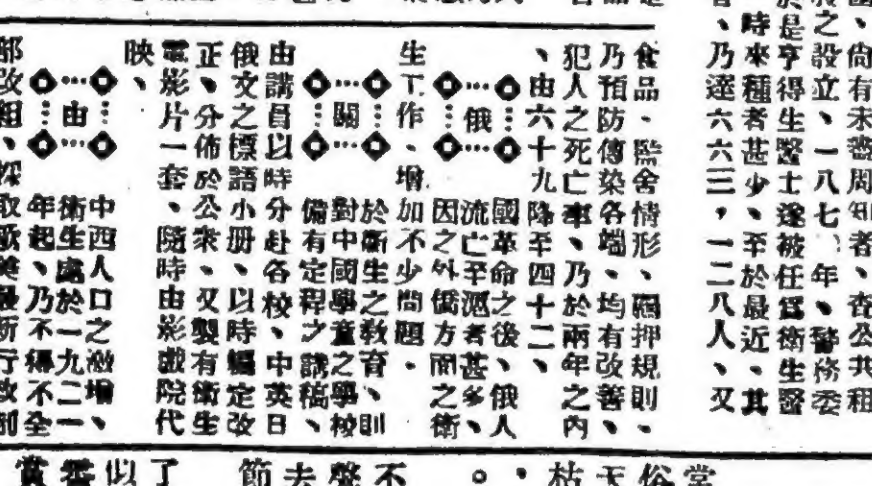 尚有未盡周知者、查公共租
之設立、一八七　年、警務委
是亨得生醫士遂被任爲衛生醫
時來種者甚少、至於最近、其
、乃達六六三，一二八人、又
食品、監舍情形、羈押規則、
乃預防傳染各端、均有改善、
犯人之死亡率、乃於兩年之內
、由六十九降至四十二、
俄國革命之後、俄人
流亡至滬者甚多、
因之外僑方面之衛
生工作、增加不少問題．
關於衛生之教育、則
對中國學童之學校
備有定程之講稿、
由講員以時分赴各校、中英日
俄文之標語小册、以時編定改
正、分佈於公衆、又製有衛生
電影片一套、隨時由影戲院代
映、
由中西人口之激增、
衛生處於一九二一
年起、乃不得不全
部改組、採取歐美最新行政制
常
俗
天
枯
，
。
不
聲
去
節
了
似
賞